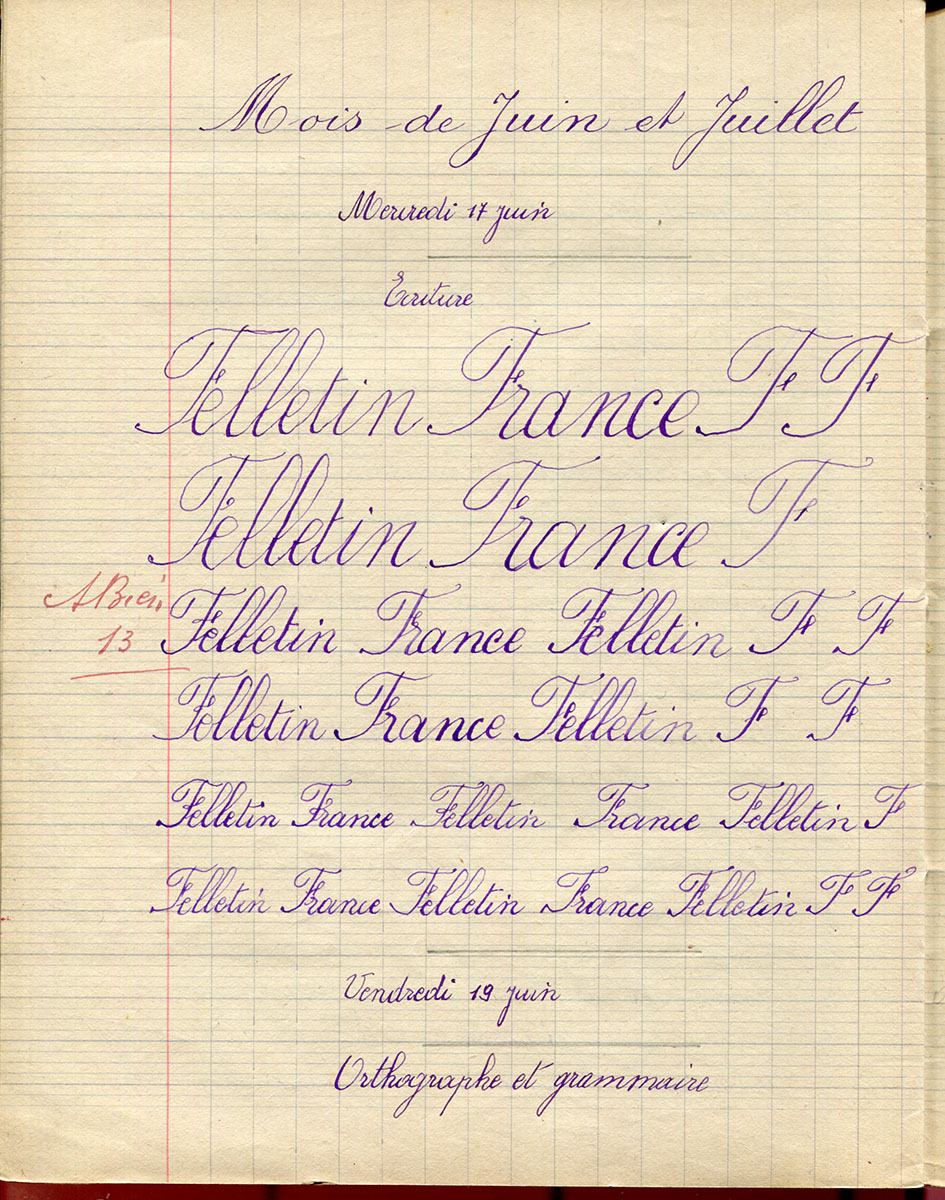 Mois de Juin et Juillet
Mercredi 17 juin
Ecriture
Felletin France F F
Felletin France F
ABien
13
Felletin France Felletin F F
Felletin France Felletin F F
Felletin France Felletin France Felletin F
Felletin France Felletin France Felletin F F
Vendredi 19 juin
Orthographe et grammaire